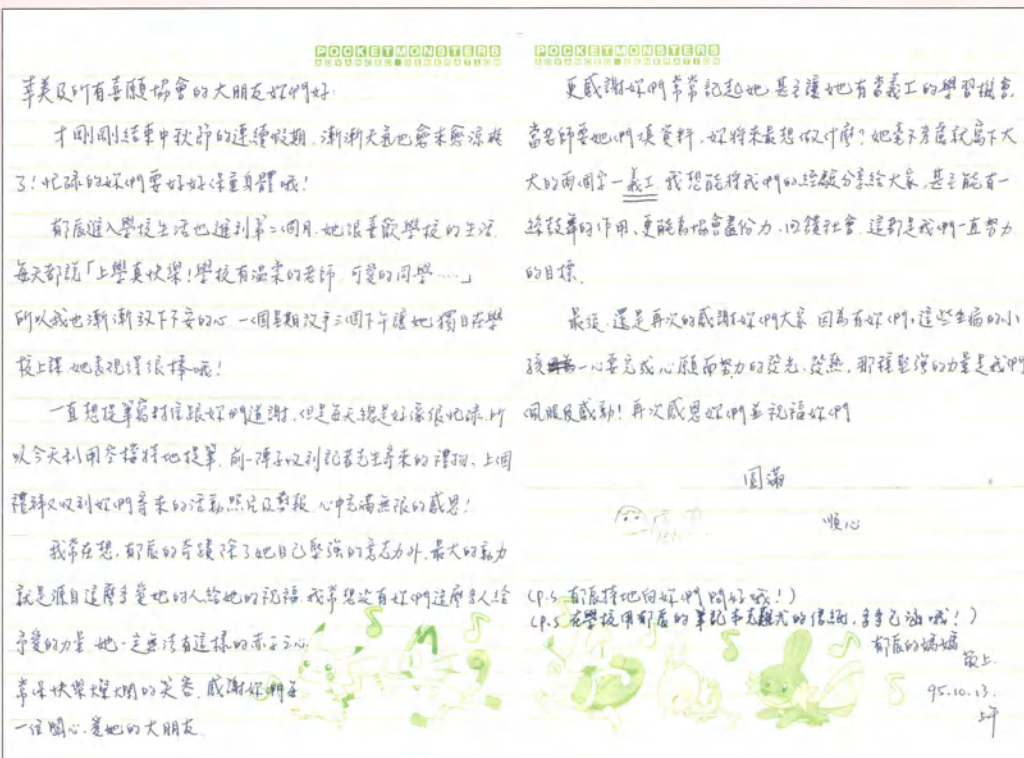 POCKET MONSTERS
ADVANCED GENERATION
華美及所有喜願協會的大朋友妳們好:
才剛剛結束中秋節的連續假期,漸漸天氣也愈來愈涼爽
了!忙碌的妳們要好好保重身體哦!
郁宸進入學校生活也進到第二個月,她很喜歡學校的生活,
每天都說「上學真快樂!學校有溫柔的老師,可愛的同學……」
所以我也漸漸放下不安的心,一個星期放手三個下午讓她獨自在學
校上課,她表現得很棒哦!
一直想提筆寫封信跟妳們道謝,但是每天總是好像很忙碌,所
以今天利用空檔特地提筆,前一陣子收到記者先生寄來的禮物、上個
禮拜又收到妳們寄來的活動照片及剪報,心中充滿無限的感恩!
我常在想,郁宸的奇蹟除了她自己堅強的意志力外,最大的動力
就是源自這麼多愛她的人給她的祝福,我常想沒有妳們這麼多人給
予愛的力量,她一定無法有這樣的赤子之心,
常保快樂燦爛的笑容,感謝妳們每
一位關心、愛她的大朋友
POCKET MONSTERS
ADVANCED GENERATION
更感謝妳們常常記起她,甚至讓她有當義工的學習機會,
當老師要她們填資料,妳將來最想做什麼?她毫不考慮就寫下大
大的兩個字—義工,我想能將我們的經驗分享給大家,甚至能有一
絲鼓舞的作用、更能為協會盡份力,回饋社會,這都是我們一直努力
的目標。
最後,還是再次的感謝妳們大家,因為有妳們,這些生病的小
孩一心要完成心願而努力的發光、發熱,那種堅強的力量是我們
佩服及感動!再次感恩妳們並祝福妳們
圓滿
順心
(P.S 郁宸特地向妳們問好哦!)
(P.S 在學校用郁宸的筆記本克難式的信紙,多多包涵哦!)
郁宸的媽媽
敬上
95.10.13.
上午